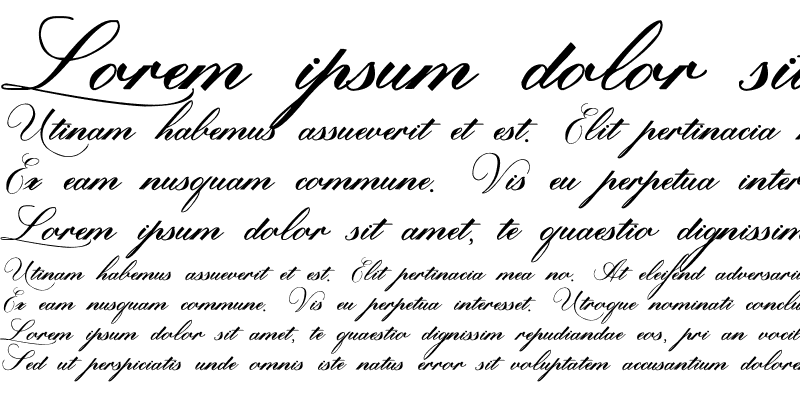 Lorem ipsum dolor sit
Utinam habemus assueverit et est. Elit pertinacia
Ex eam nusquam commune. Vis eu perpetua inter
Lorem ipsum dolor sit amet, te quaestio dignissim
Utinam habemus assueverit et est. Elit pertinacia mea no. At eleifend adversari
Ex eam nusquam commune. Vis eu perpetua interesset. Utroque nominati conclu
Lorem ipsum dolor sit amet, te quaestio dignissim repudiandae eos, pri an vocit
Sed ut perspiciatis unde omnis iste natus error sit voluptatem accusantium dolore